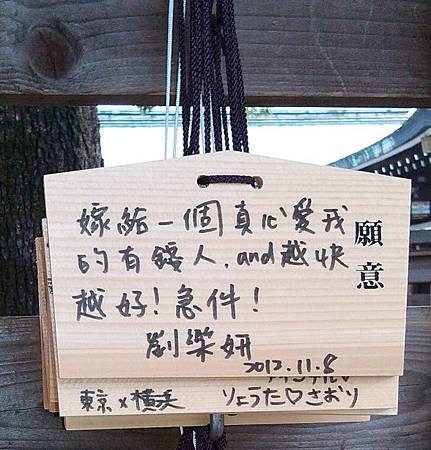 願意
嫁給一個真心愛我
的有錢人.and越快
越好!急件!
劉樂妍
2012.11.8
東京×横浜 りょうた♡さおり